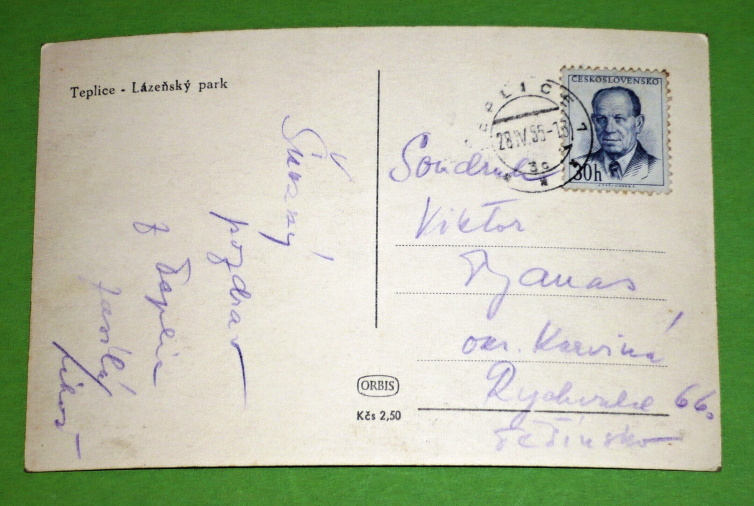 Teplice - Lázeňský park
pozdrav
z Teplic
zasílá
TEPLICE
28.IV.55-18
3c
ČESKOSLOVENSKO
30h
Viktor
okr. Karviná
Rychvald 66.
Těšínsko
ORBIS
Kčs 2,50